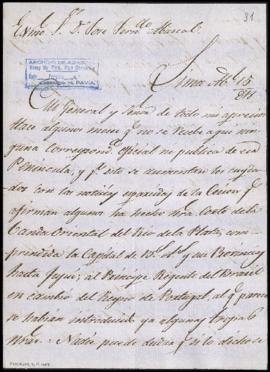 31
Exmo. Sr. D. José Fern.do Abascal.
Lima Ab.l 15/811
Mi General y Señor de todo mi aprecio:
Hace algunos meses q.e no se recibe aqui nin-
guna correspond.a oficial ni publica de esa
Peninsula, y p.r esto se aumentan los cuyda-
dos con las noticias esparcidas de la Cesion q.e
afirman algunos ha hecho esta Corte de la
Banda Oriental del Rio de la Plata, com-
prendida la Capital de B.s A.s y sus Provincias
hasta Jujuí, al Principe Regente del Brasil
en cambio del Reyno de Portugal, al q.e parece
se habian introducido ya algunas tropas
Nada puede decirse q.e lo dicho se